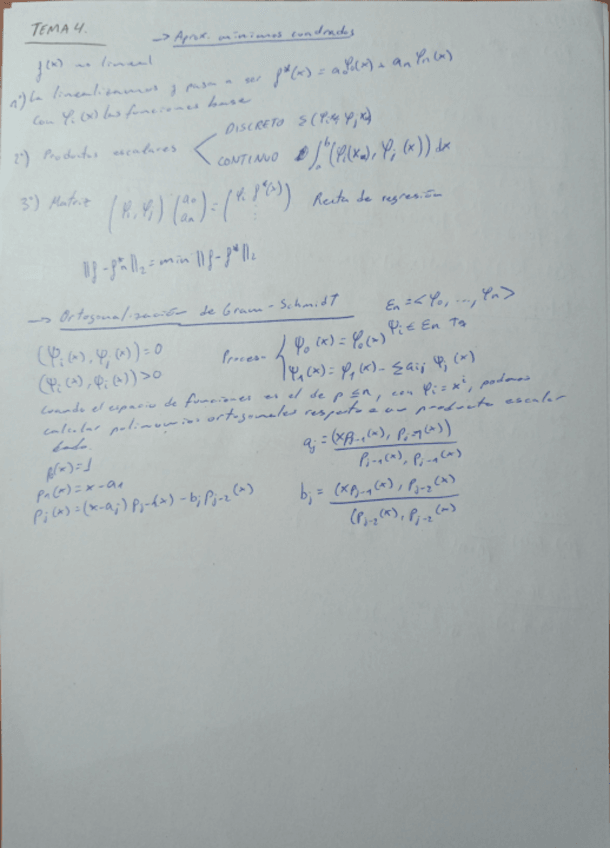 TEMA 4.
→ Aprox. mínimos cuadrados
f(x) no lineal
1º) La linealizamos y pasa a ser f*(x) = a₀φ₀(x) + aₙφₙ(x)
Con φᵢ(x) las funciones base
2º) Productos escalares
DISCRETO Σ(φᵢxₖ φⱼxₖ)
CONTINUO ∫ₐᵇ(φᵢ(xₖ), φⱼ(x)) dx
3º) Matriz (φᵢ, φⱼ) (a₀ aₙ) = (φᵢ f*(x) ⋮) Recta de regresión
||f - f*ₙ||₂ = min ||f - f*||₂
→ Ortogonalización de Gram-Schmidt
Eₙ = <φ₀, ..., φₙ>
(ψᵢ(x), ψⱼ(x)) = 0
(ψᵢ(x), ψᵢ(x)) > 0
Proceso { ψ₀(x) = φ₀(x) ψᵢ ∈ Eₙ Tq
ψ₁(x) = φ₁(x) - Σ aᵢⱼ ψⱼ(x)
Cuando el espacio de funciones es el de p ≤ n, con φᵢ = xⁱ, podemos
calcular polinomios ortogonales respecto a un producto escalar
dado.
p₀(x) = 1
p₁(x) = x - a₁
pⱼ(x) = (x - aⱼ) pⱼ₋₁(x) - bⱼ pⱼ₋₂(x)
aⱼ = (x pⱼ₋₁(x), pⱼ₋₁(x)) / pⱼ₋₁(x), pⱼ₋₁(x)
bⱼ = (x pⱼ₋₁(x), pⱼ₋₂(x) / (pⱼ₋₂(x), pⱼ₋₂(x)